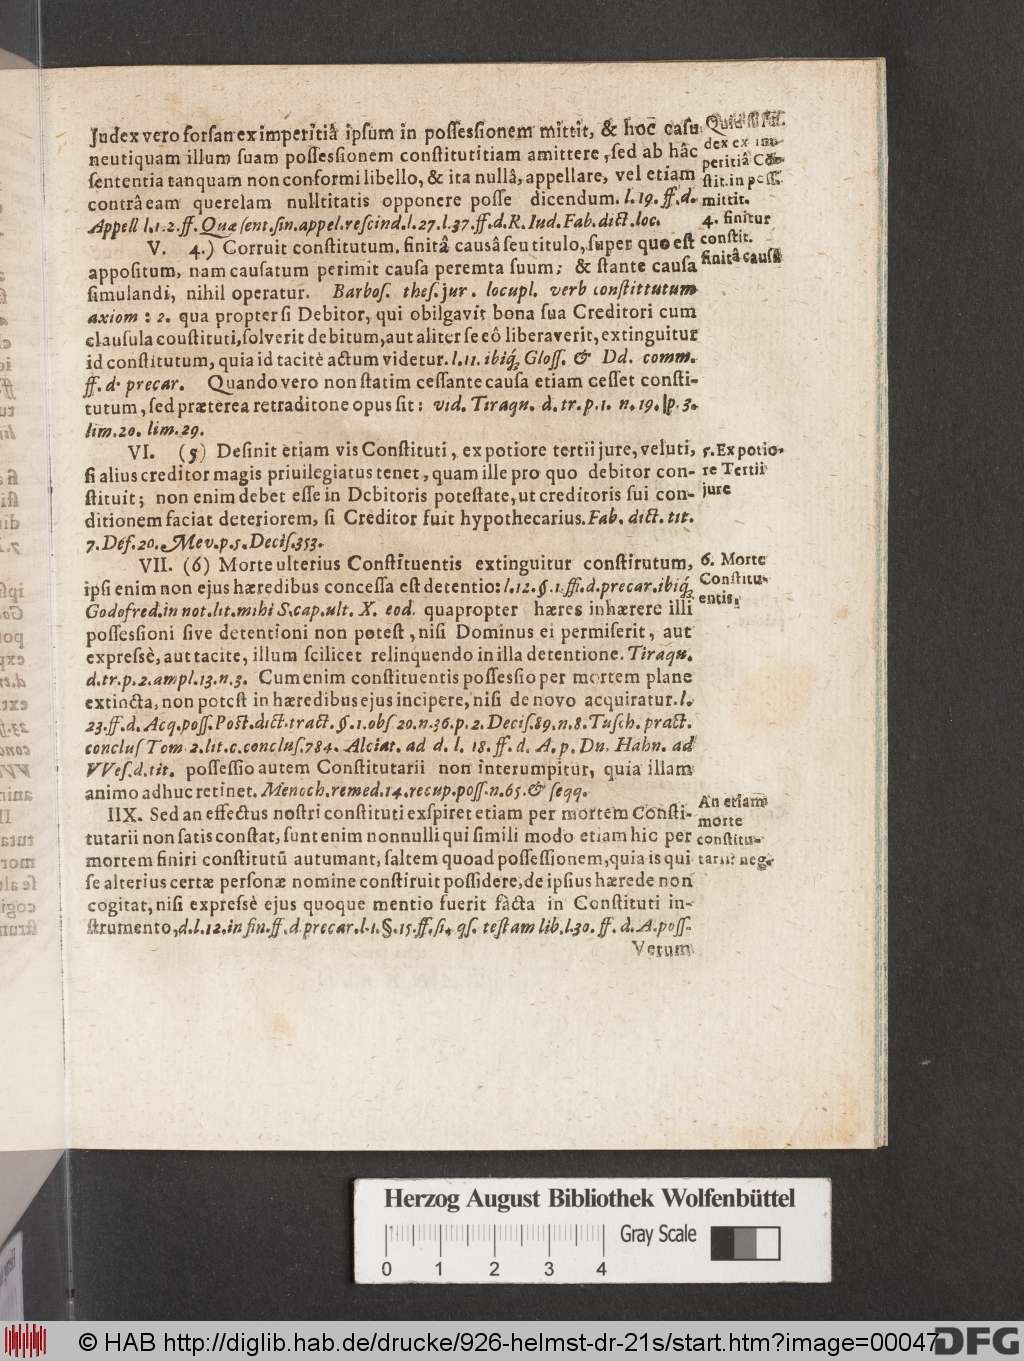 Judex vero forsan ex imperitiâ ipsum in possessionem mittit, & hoc casu
neutiquam illum suam possessionem constitutitiam amittere, sed ab hâc
sententia tanquam non conformi libello, & ita nullâ, appellare, vel etiam
contrà eam querelam nulltitatis opponere posse dicendum. l. 19. ff. d.
Appell l. 1. 2. ff. Quæ sent. sin. appel. rescind. l. 27. l. 37. ff. d. R. Iud. Fab. dict. loc.
V. 4.) Corruit constitutum. finitâ causâ seu titulo, super quo est
appositum, nam causatum perimit causa peremta suum; & stante causa
simulandi, nihil operatur. Barbos. thes. jur. locupl. verb constittutum
axiom : 2. qua propter si Debitor, qui obilgavit bona sua Creditori cum
clausula coustituti, solverit debitum, aut aliter se eô liberaverit, extinguitur
id constitutum, quia id tacitè actum videtur. l. 11. ibiq; Gloss. & Dd. comm.
ff. d. precar. Quando vero non statim cessante causa etiam cesset consti-
tutum, sed præterea retraditone opus sit: vid. Tiraqu. d. tr. p. 1. n. 19. p. 3.
lim. 20. lim. 29.
VI. (5) Desinit etiam vis Constituti, ex potiore tertii jure, veluti,
si alius creditor magis priuilegiatus tenet, quam ille pro quo debitor con-
stituit; non enim debet esse in Debitoris potestate, ut creditoris sui con-
ditionem faciat deteriorem, si Creditor fuit hypothecarius. Fab. dict. tit.
7. Def. 20. Mev. p. 5. Decis. 353.
VII. (6) Morte ulterius Constituentis extinguitur constirutum,
ipsi enim non ejus hæredibus concessa est detentio: l. 12. §. 1. ff. d. precar. ibiq;
Godofred. in not. lit. mihi S. cap. ult. X. eod. quapropter hæres inhærere illi
possessioni sive detentioni non potest, nisi Dominus ei permiserit, aut
expressè, aut tacite, illum scilicet relinquendo in illa detentione. Tiraqu.
d. tr. p. 2. ampl. 13. n. 3. Cum enim constituentis possessio per mortem plane
extincta, non potest in hæredibus ejus incipere, nisi de novo acquiratur. l.
23. ff. d. Acq. poss. Post. dict. tract. §. 1. obs 20. n. 36. p. 2. Decis. 89. n. 8. Tusch. pract.
conclus Tom 2. lit. c. conclus. 784. Alciat. ad d. l. 18. ff. d. A. p. Dn. Hahn. ad
VVes. d. tit. possessio autem Constitutarii non interumpitur, quia illam
animo adhuc retinet. Menoch. remed. 14. recup. poss. n. 65. & seqq.
IIX. Sed an effectus nostri constituti exspiret etiam per mortem Consti-
tutarii non satis constat, sunt enim nonnulli qui simili modo etiam hic per
mortem finiri constitutū autumant, saltem quoad possessionem, quia is qui
se alterius certæ personæ nomine constiruit possidere, de ipsius hærede non
cogitat, nisi expressè ejus quoque mentio fuerit fàcta in Constituti in-
strumento, d. l. 12. in fin. ff. d. precar. l. 1. §. 15. ff. si. qs. testam lib. l. 30. ff. d. A. poss.
Verum
dex ex im-
peritiâ Cō-
stit. in poss.
mittit.
4. finitur
constit.
finitâ causâ
5. Ex potio-
re Tertii
jure
6. Morte
Constitu-
entis,
An etiam
morte
constitu-
tarii? neg.
Herzog August Bibliothek Wolfenbüttel
Gray Scale
0 1 2 3 4
© HAB http://diglib.hab.de/drucke/926-helmst-dr-21s/start.htm?image=00047
DFG